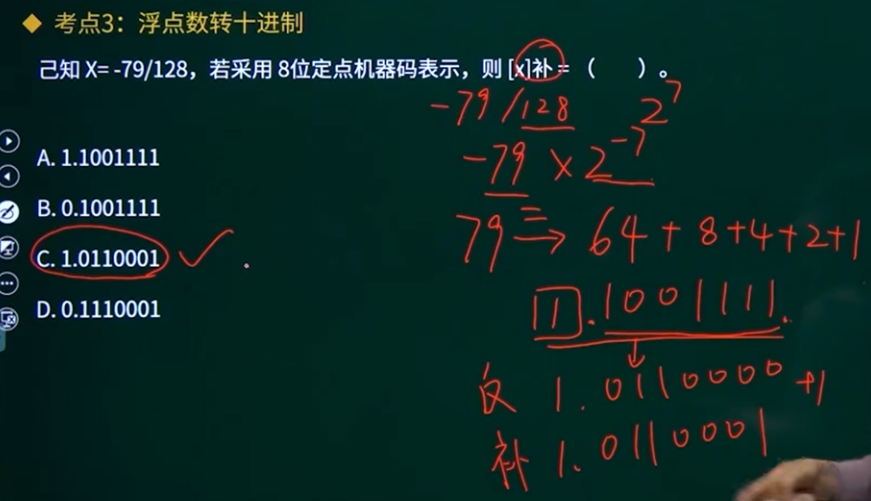 考点3：浮点数转十进制
己知 X= -79/128，若采用 8位定点机器码表示，则 [x]补 = （ ）。
A. 1.1001111
B. 0.1001111
C. 1.0110001
D. 0.1110001
-79/128 2^7
-79×2^-7
79 ⇒ 64+8+4+2+1
1.1001111.
反 1.0110000 +1
补 1.0110001